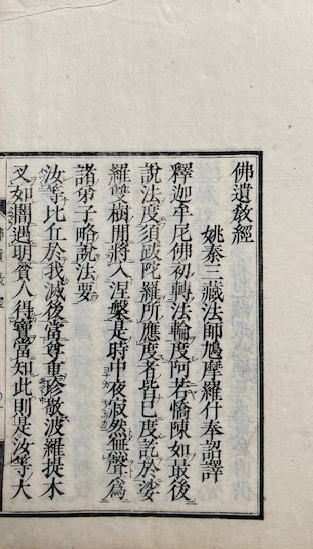 佛遺敎經
姚秦三藏法師鳩摩羅什奉詔譯
釋迦牟尼佛初轉法輪度阿若憍陳如最後
說法度須跋陀羅所應度者皆已度訖於娑
羅雙樹閒將入涅槃是時中夜寂然無聲爲
諸弟子略說法要
汝等比丘於我滅後當尊重珍敬波羅提木
叉如闇遇明貧人得寶當知此則是汝等大